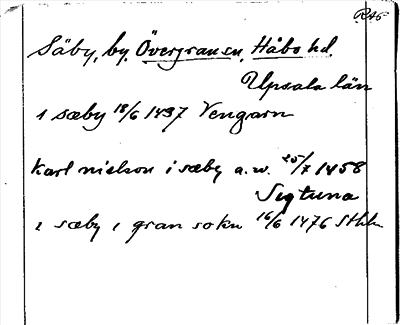 RAÄ
Säby, by. Övergran sn, Håbo hd.
Upsala län
i sæby 18/6 1437 Vengarn
Karl nielson i sæby a.w. 25/7 1458
Sigtuna
i sæby i gran sokn 16/6 1476 Sthlm